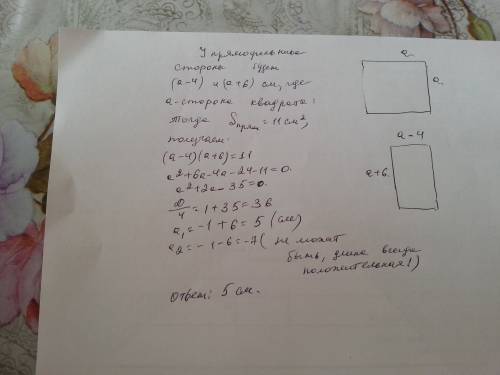 У прямоугольника
стороны будут
(a-4) и (a+6) см, где
a-сторона квадрата.
Тогда Sпрям = 11 см²,
получаем:
(a-4)(a+6)=11
a²+6a-4a-24-11=0.
a²+2a-35=0.
D/4=1+35=36
a₁=-1+6=5 (см)
a₂=-1-6=-7 (не может
быть, длина всегда
положительная!)
Ответ: 5 см.
a
a
a-4
a+6